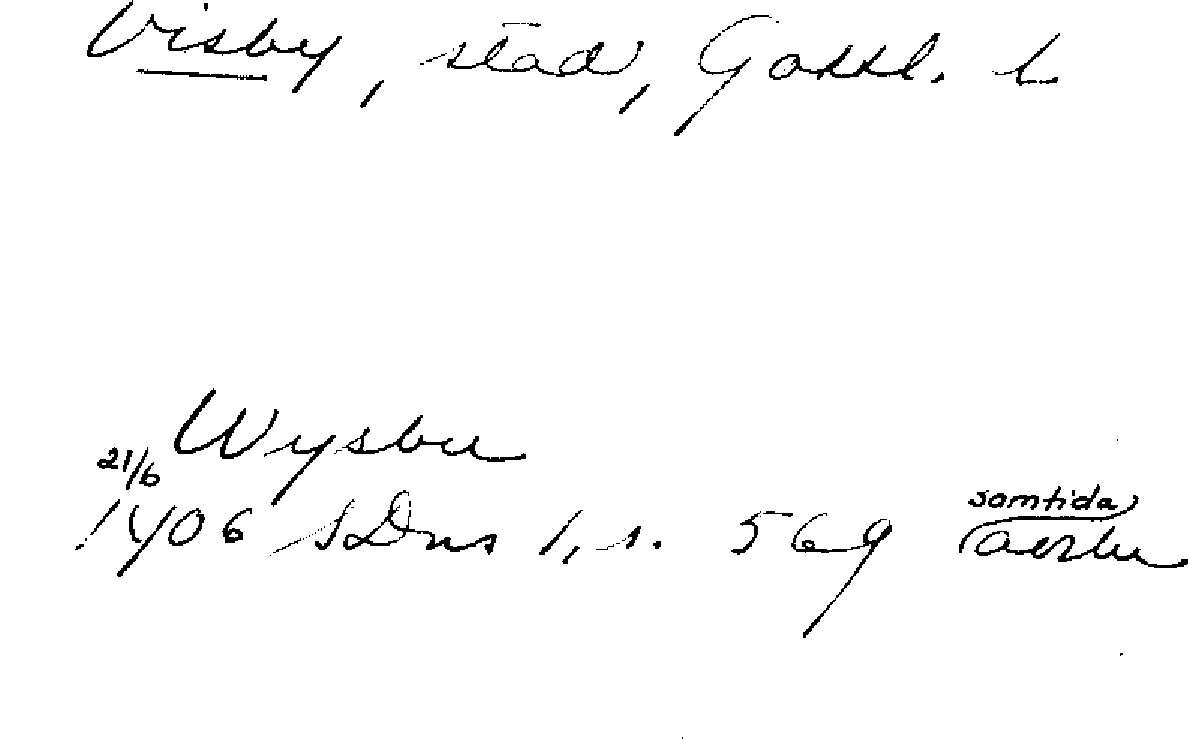 Visby, stad, Gottl. l
Wysbu
21/6
1406 SDns 1, s. 569 (samtida avskr